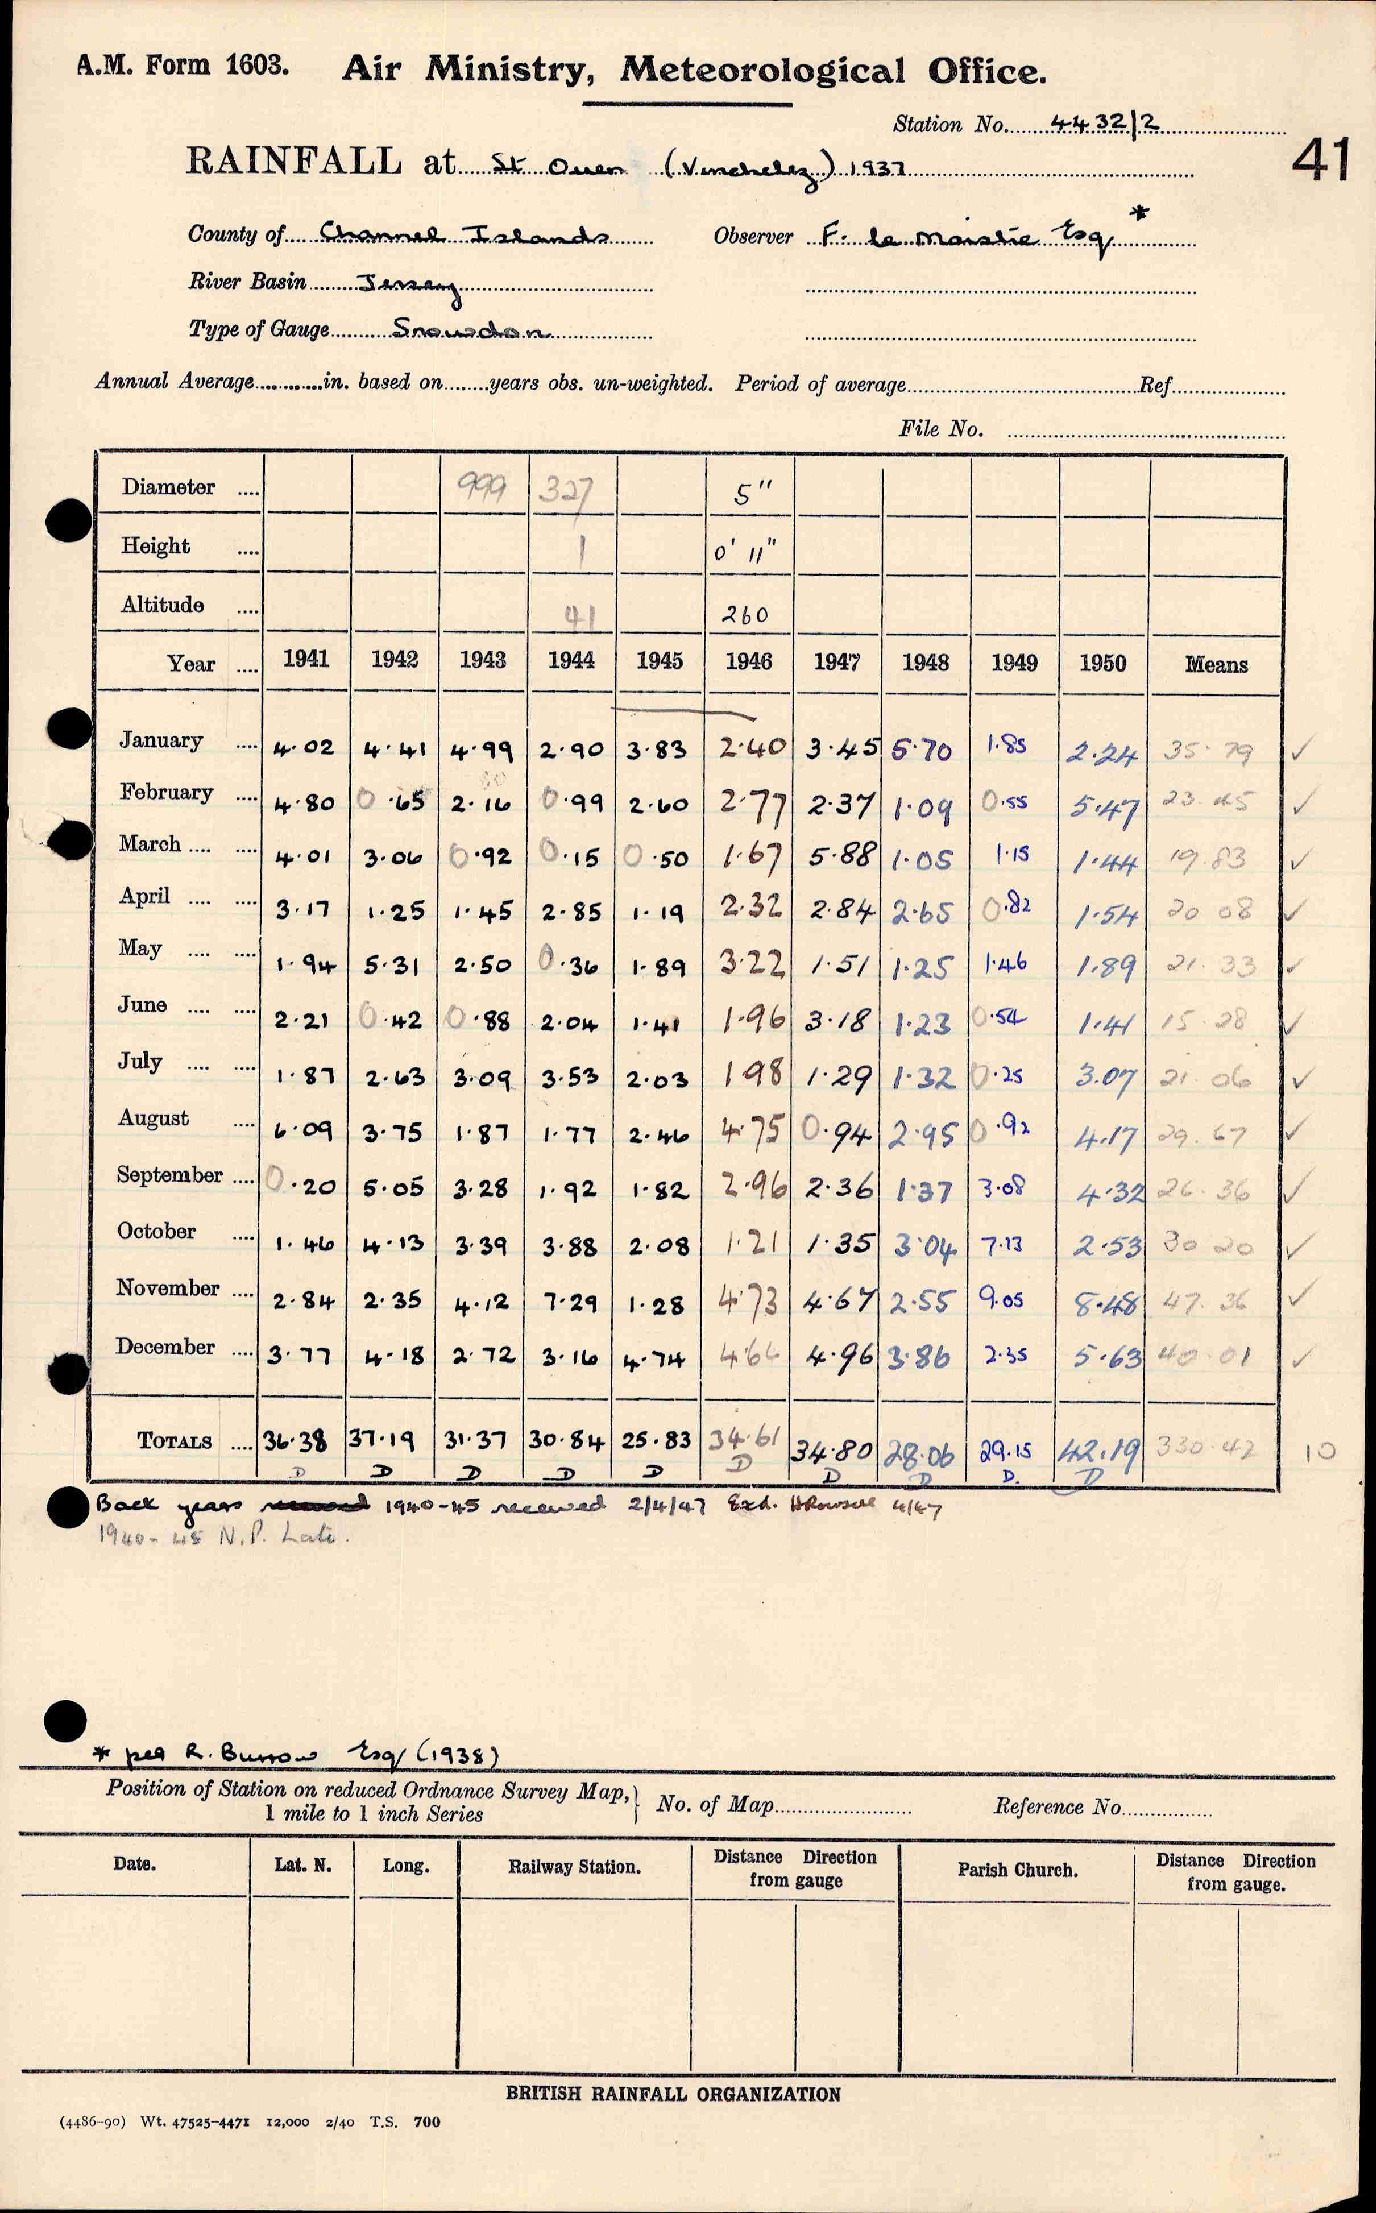 A.M. Form 1603. Air Ministry, Meteorological Office.
Station No. 4432/2
41
RAINFALL at St Ouen (Vinchelez) 1937
County of Channel Islands Observer F. le Maistre Esq *
River Basin Jersey
Type of Gauge Snowdon
Annual Average in. based on years obs. un-weighted. Period of average Ref
File No.
Diameter .... 999 327 5"
Height .... 1 0' 11"
Altitude .... 41 260
Year .... 1941 1942 1943 1944 1945 1946 1947 1948 1949 1950 Means
January .... 4.02 4.41 4.99 2.90 3.83 2.40 3.45 5.70 1.85 2.24 35.79 ✓
February .... 4.80 0.65 2.16 0.99 2.60 2.77 2.37 1.09 0.55 5.47 23.45 ✓
March .... .... 4.01 3.06 0.92 0.15 0.50 1.67 5.88 1.05 1.15 1.44 19.83 ✓
April .... .... 3.17 1.25 1.45 2.85 1.19 2.32 2.84 2.65 0.82 1.54 20 08 ✓
May .... .... 1.94 5.31 2.50 0.36 1.89 3.22 1.51 1.25 1.46 1.89 21.33 ✓
June .... .... 2.21 0.42 0.88 2.04 1.41 1.96 3.18 1.23 0.54 1.41 15.28 ✓
July .... .... 1.87 2.63 3.09 3.53 2.03 1.98 1.29 1.32 0.25 3.07 21.06 ✓
August .... 6.09 3.75 1.87 1.77 2.46 4.75 0.94 2.95 0.92 4.17 29.67 ✓
September .... 0.20 5.05 3.28 1.92 1.82 2.96 2.36 1.37 3.08 4.32 26.36 ✓
October .... 1.46 4.13 3.39 3.88 2.08 1.21 1.35 3.04 7.13 2.53 30 20 ✓
November .... 2.84 2.35 4.12 7.29 1.28 4.73 4.67 2.55 9.05 8.48 47.36 ✓
December .... 3.77 4.18 2.72 3.16 4.74 4.64 4.96 3.86 2.35 5.63 40.01 ✓
TOTALS .... 36.38 37.19 31.37 30.84 25.83 34.61 34.80 28.06 29.15 42.19 330.42 10
D D D D D D D D D. D
Back years 1940-45 received 2/4/47 Exd. HRowsell 4/47
1940-45 N.P. Late.
* per R. Burrow Esq (1938)
Position of Station on reduced Ordnance Survey Map, 1 mile to 1 inch Series } No. of Map Reference No.
Date. Lat. N. Long. Railway Station. Distance Direction from gauge Parish Church. Distance Direction from gauge.
BRITISH RAINFALL ORGANIZATION
(4486-90) Wt. 47525-4471 12,000 2/40 T.S. 700